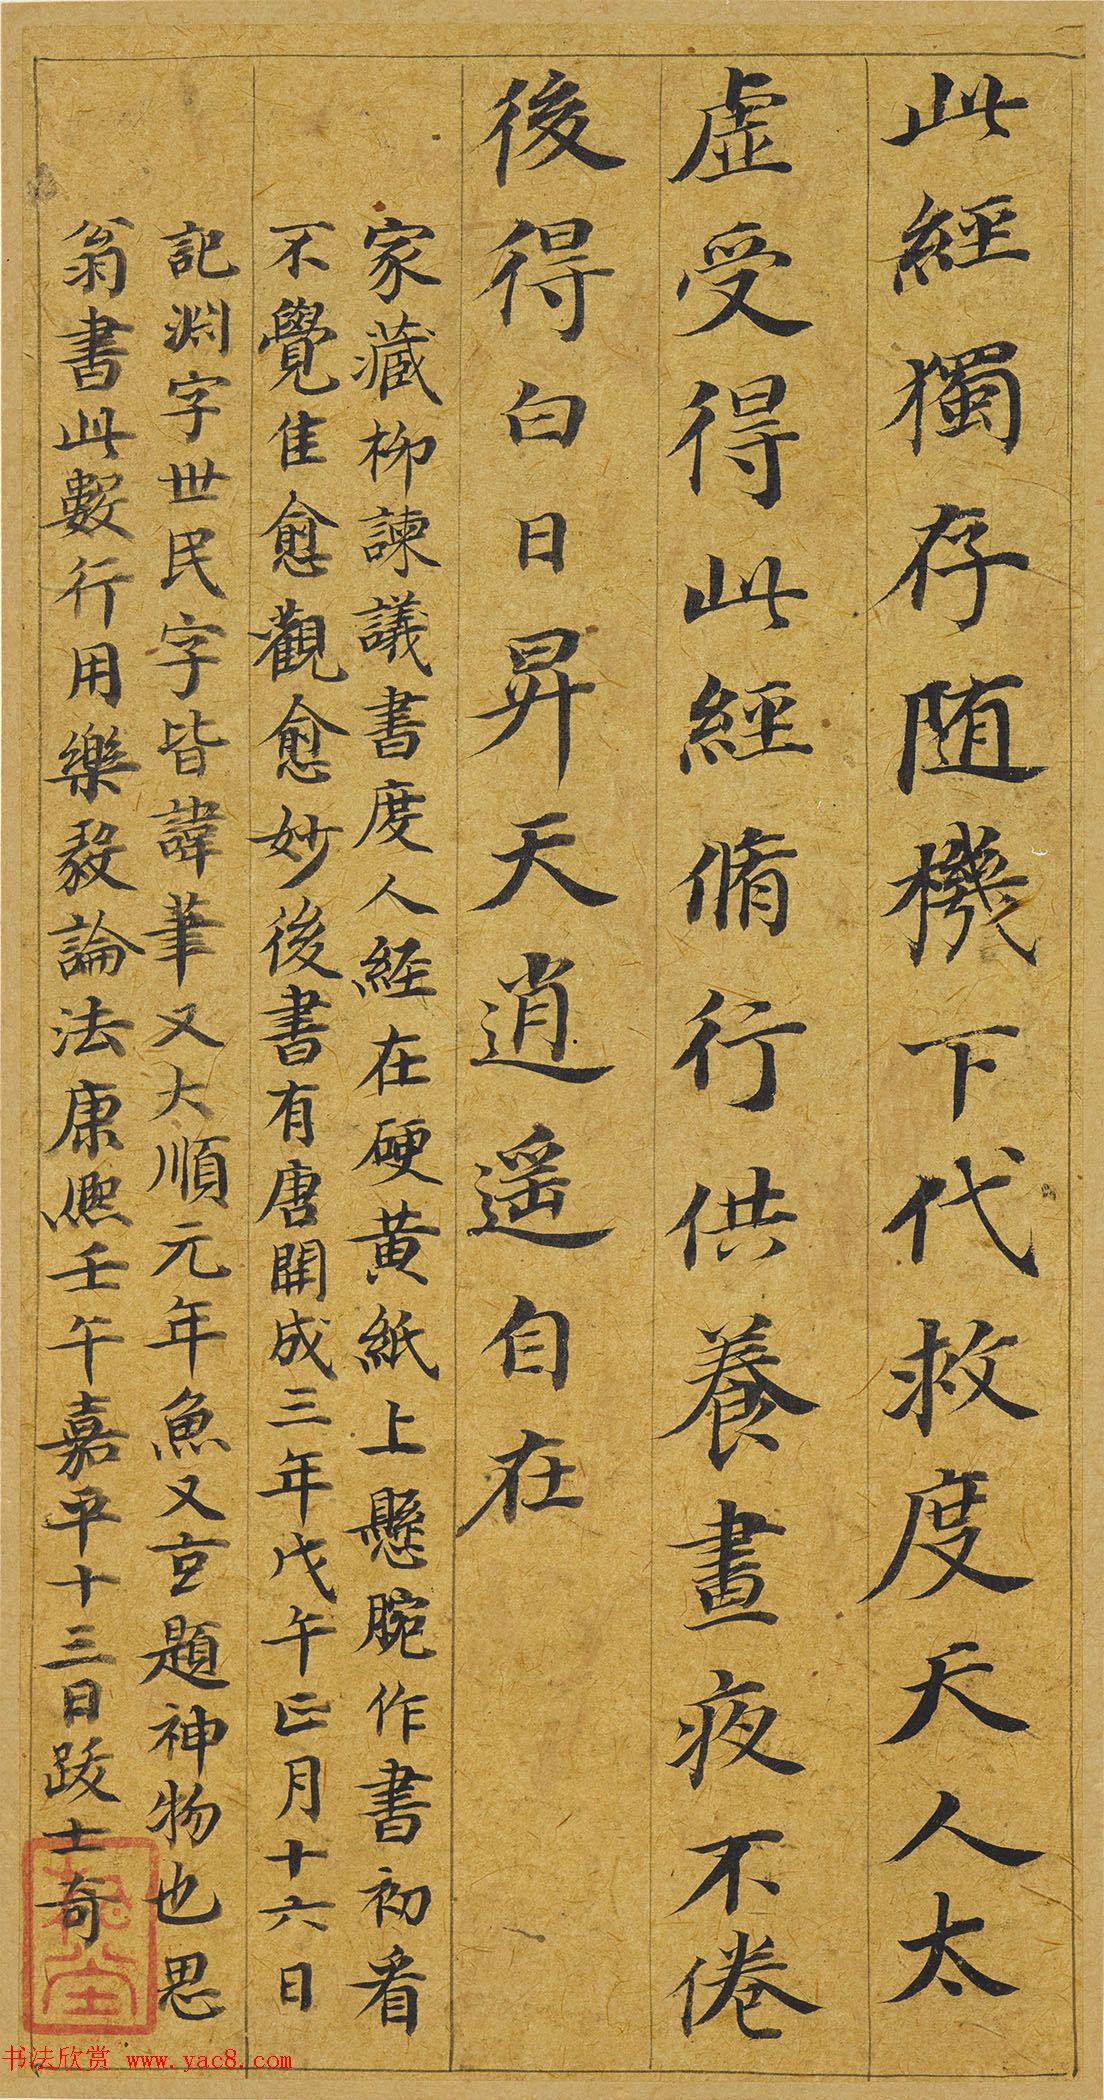 此經獨存随機下代救度天人太
虛受得此經脩行供養晝夜不倦
後得白日昇天逍遥自在
家藏柳諫議書度人經在硬黄紙上懸腕作書初看
不覺佳愈觀愈妙後書有唐開成三年戊午正月十六日
記渊字世民字皆諱筆又大順元年魚又玄題神物也思
翁書此數行用樂毅論法康熙壬午嘉平十三日跋士奇
书法欣赏 www.yac8.com